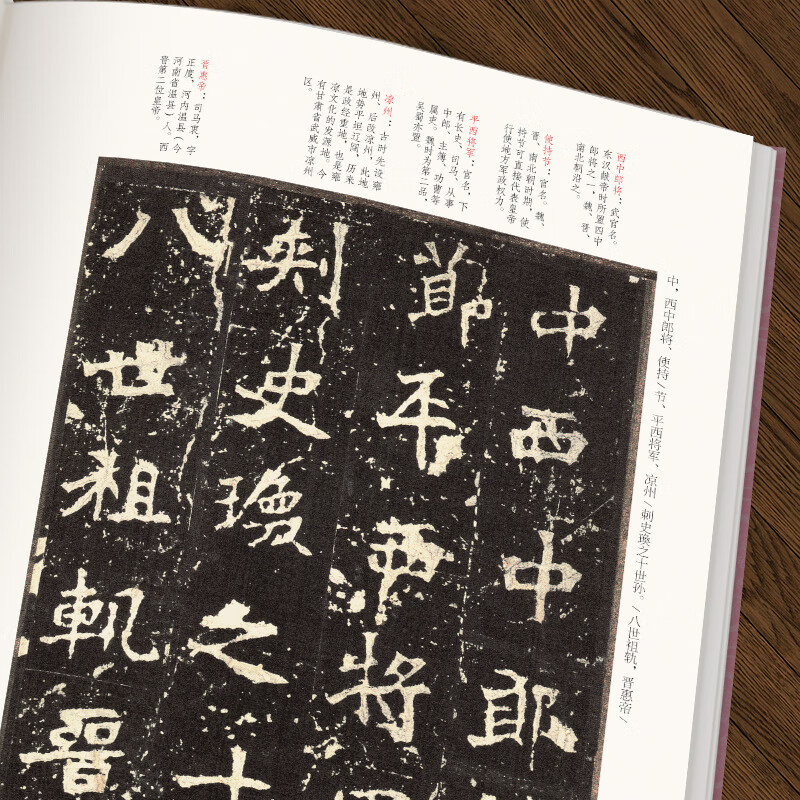 中，西中郎将、使持/节、平西将军、凉州/刺史瑍之十世孙。/八世祖轨，晋惠帝/
西中郎将：武官名。
东汉献帝时所置四中
郎将之一，魏、晋、
南北朝沿之。
使持节：官名。魏、
晋、南北朝时期，使
持节可直接代表皇帝
行使地方军政权力。
平西将军：官名，下
有长史、司马、从事
中郎、主薄、功曹等
属吏。魏时为第二品，
吴蜀亦置。
凉州：古时先设雍
州，后改凉州，此地
地势平坦辽阔，历来
是政经重地，也是雍
凉文化的发源地。今
有甘肃省武威市凉州
区。
晋惠帝：司马衷，字
正度，河内温县（今
河南省温县）人。西
晋第二位皇帝。
中西中郎
節平西将
刺史瑍之十
八世祖軌晉